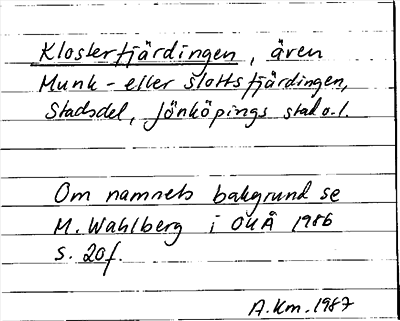 Klosterfjärdingen, även
Munk- eller Slottsfjärdingen,
Stadsdel, Jönköpings stad o. l.
Om namnets bakgrund se
M. Wahlberg i OUÅ 1986
s. 20 f.
A. Km. 1987